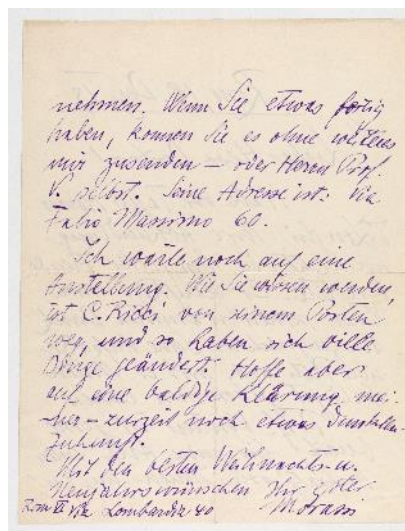 nehmen. Wenn Sie etwas fertig
haben, können Sie es ohne weiteres
mir zusenden – oder Herrn Prof.
V. selbst. Seine Adresse ist: Via
Fabio Massimo 60.
Ich warte noch auf eine
Anstellung. Wie Sie wissen werden,
ist C. Ricci von seinem Posten
weg, und so haben sich viele
Dinge geändert. Hoffe aber
auf eine baldige Klärung mei-
ner – zurzeit noch etwas dunklen –
Zukunft.
Mit den besten Weihnachts- u.
Neujahrswünschen Ihr
Morassi
Rom VI Via Lombardia 40